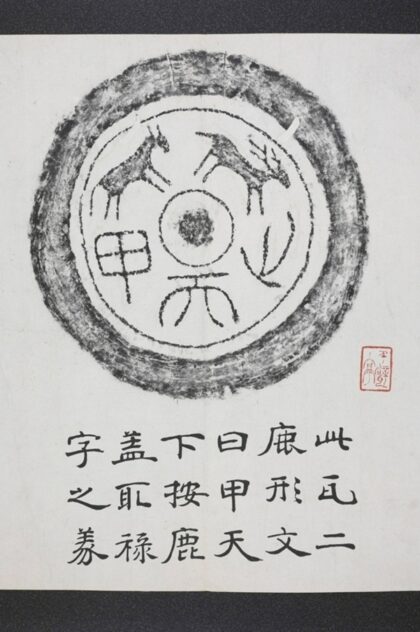 甲天下
此瓦二
鹿形文
曰甲天
下按鹿
盖取祿
字之義